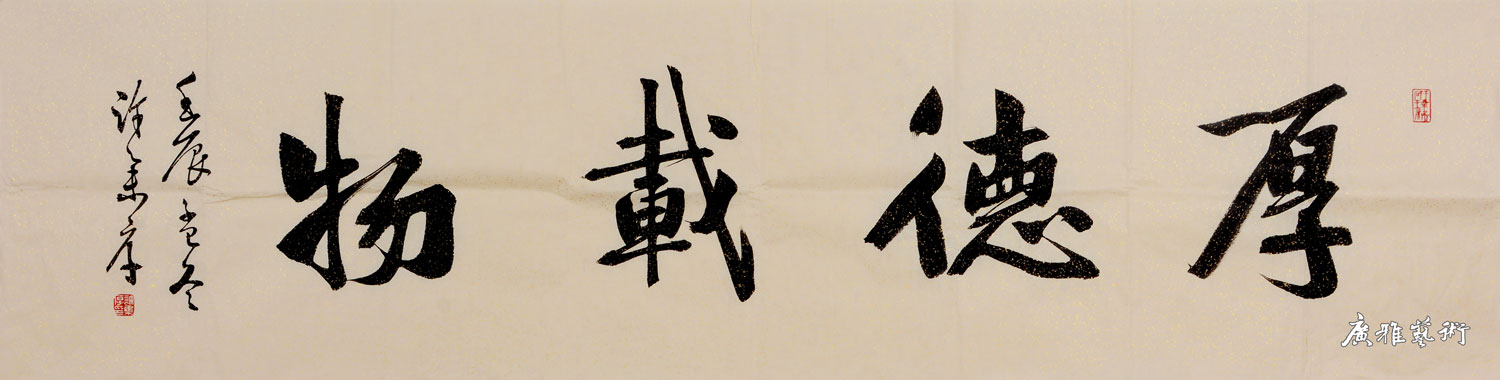 厚德載物
壬辰孟冬
許
廣雅藝術